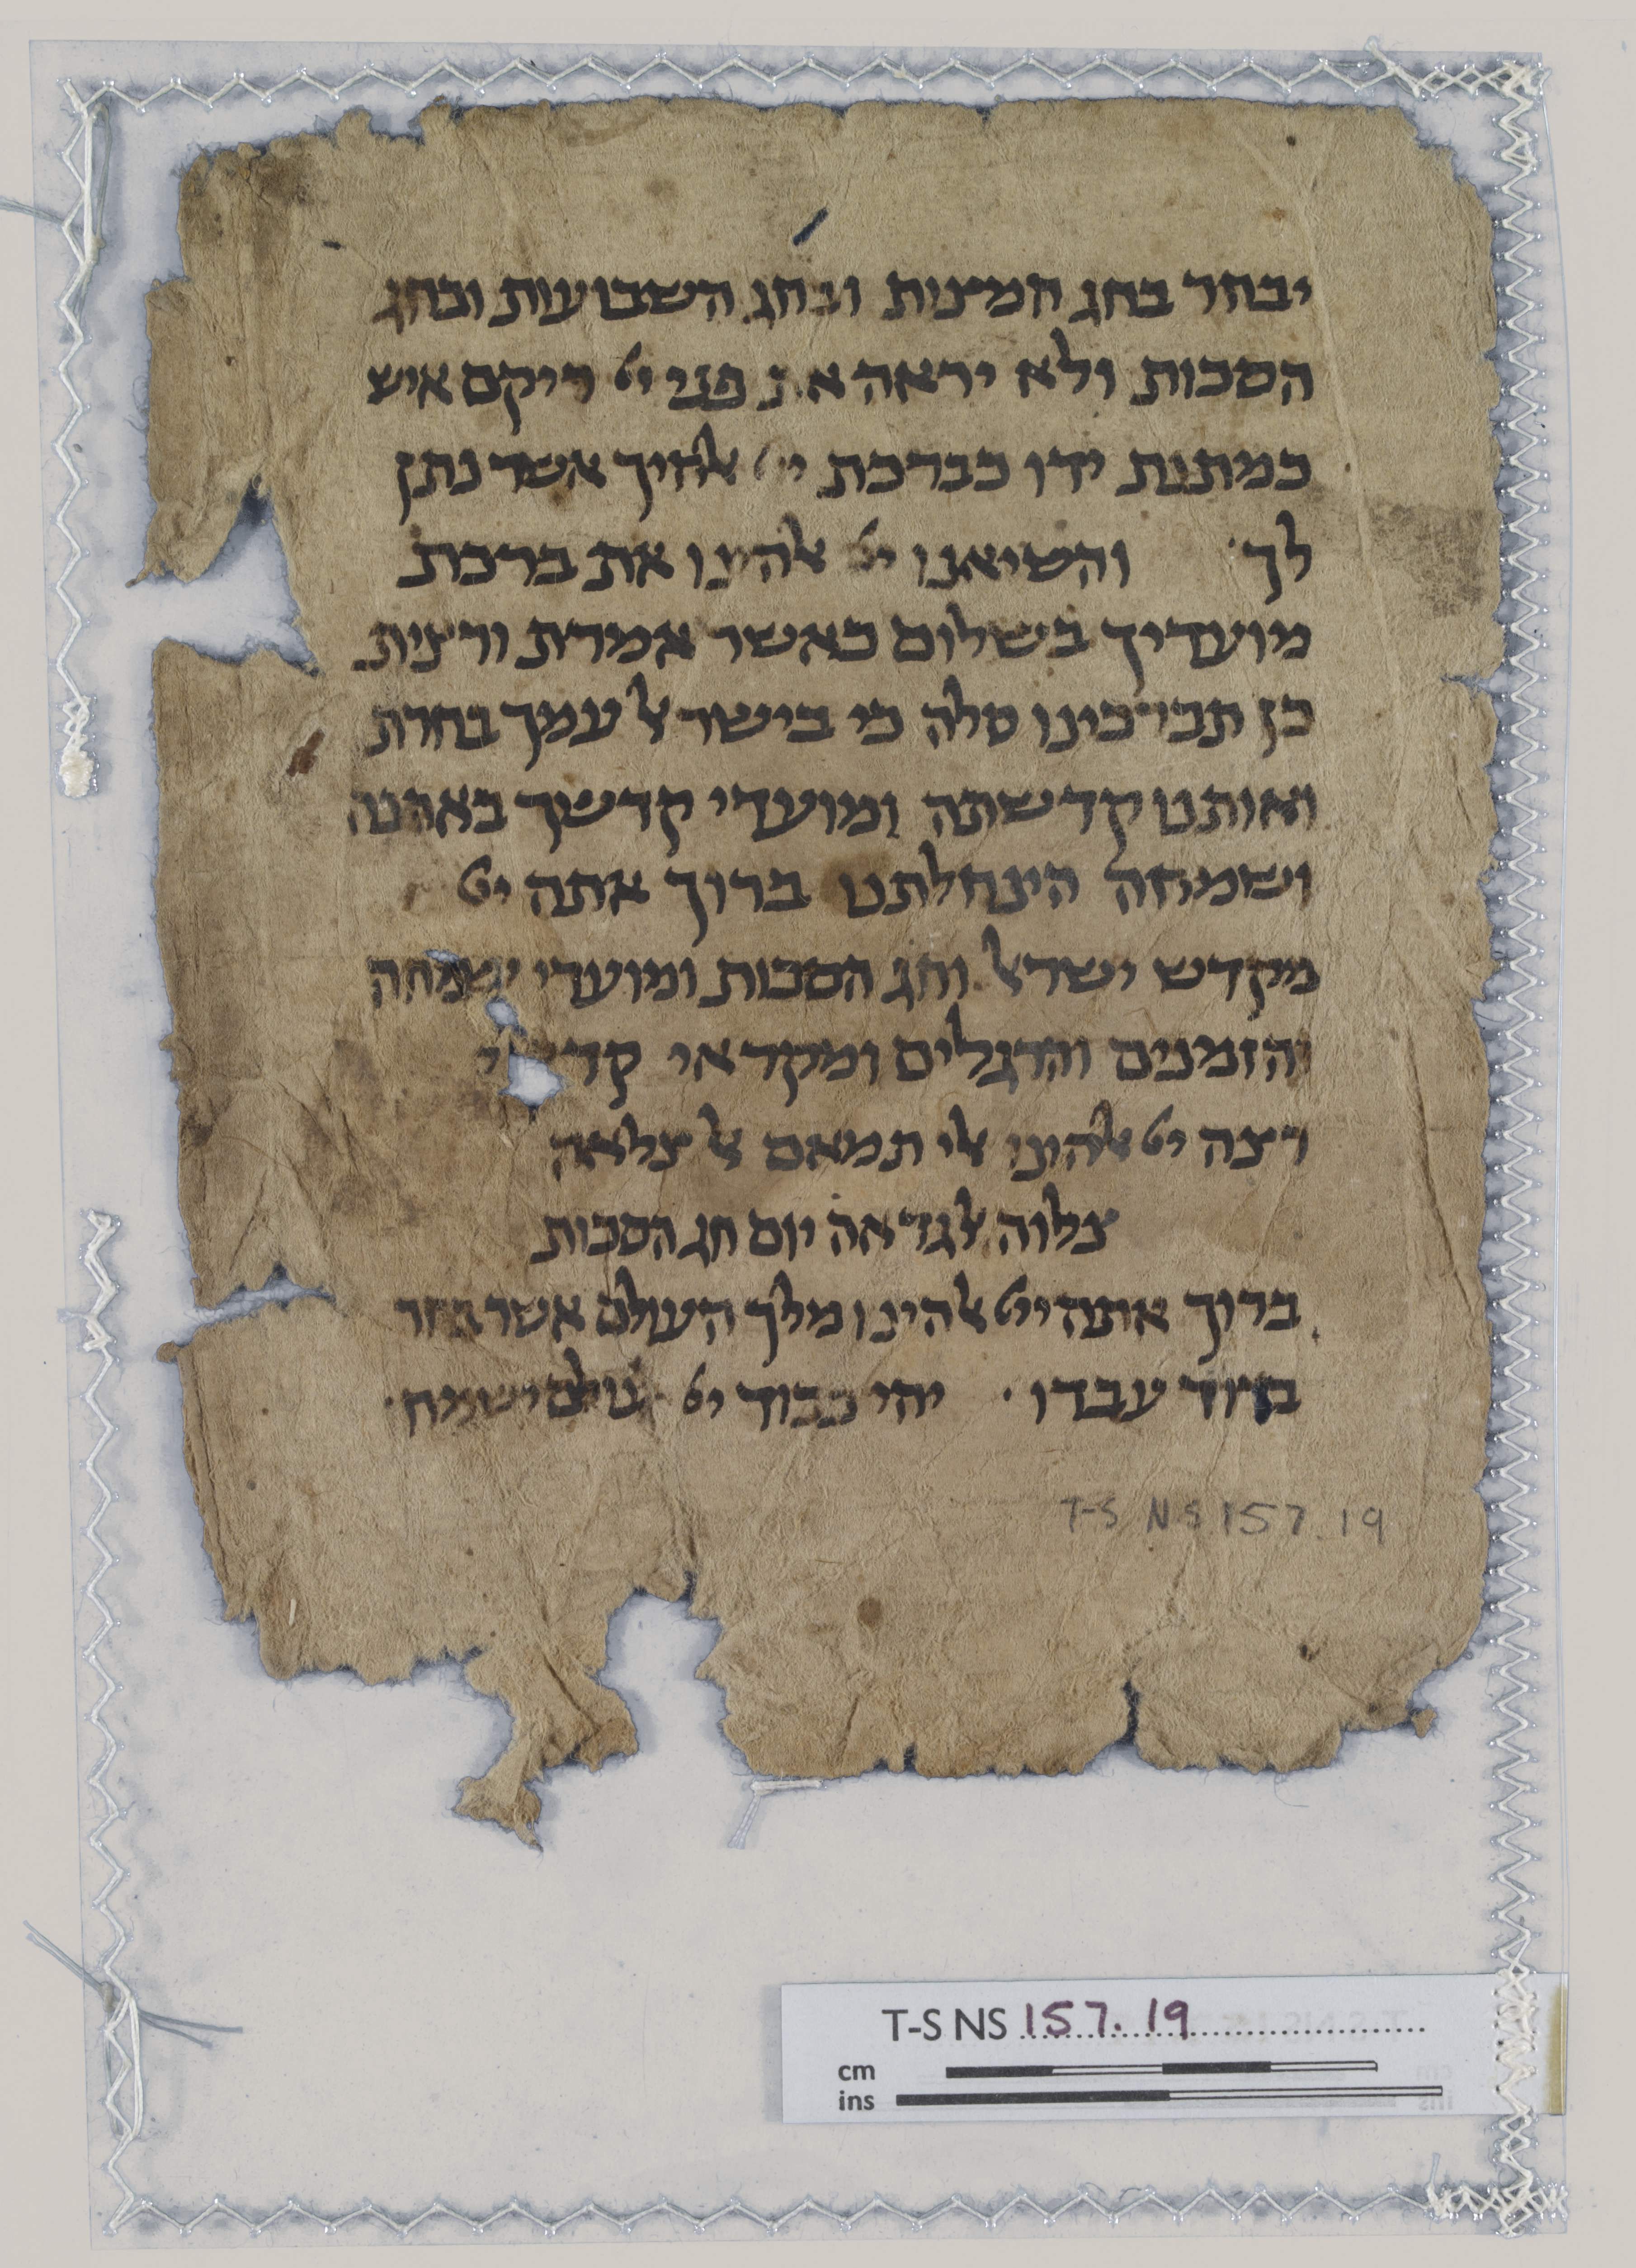 יבחר בחג המצות ובחג השבועות ובחג
הסכות ולא יראה את פני ייי ריקם איש
כמתנת ידו כברכת ייי אלהיך אשר נתן
לך והשיאנו ייי אלהינו את ברכת
מועדיך בשלום כאשר אמרת ורצית
כן תברכינו סלה כי בישראל עמך בחרת
ואותנו קדשתה ומועדי קדשך באהבה
ושמחה הינחלתנו ברוך אתה ייי
מקדש ישראל וחג הסכות ומועדי שמחה
והזמנים והרגלים ומקראי
רצה ייי אלהינו אלי תמאם אל צלאה
צלוה לגדאה יום חג הסכות
ברוך אתה ייי אלהינו מלך העולם אשר בחר
בדוד עבדו יהי כבוד ייי לעולם ישמח
T-S NS 157.19
T-S NS 157.19
cm
ins